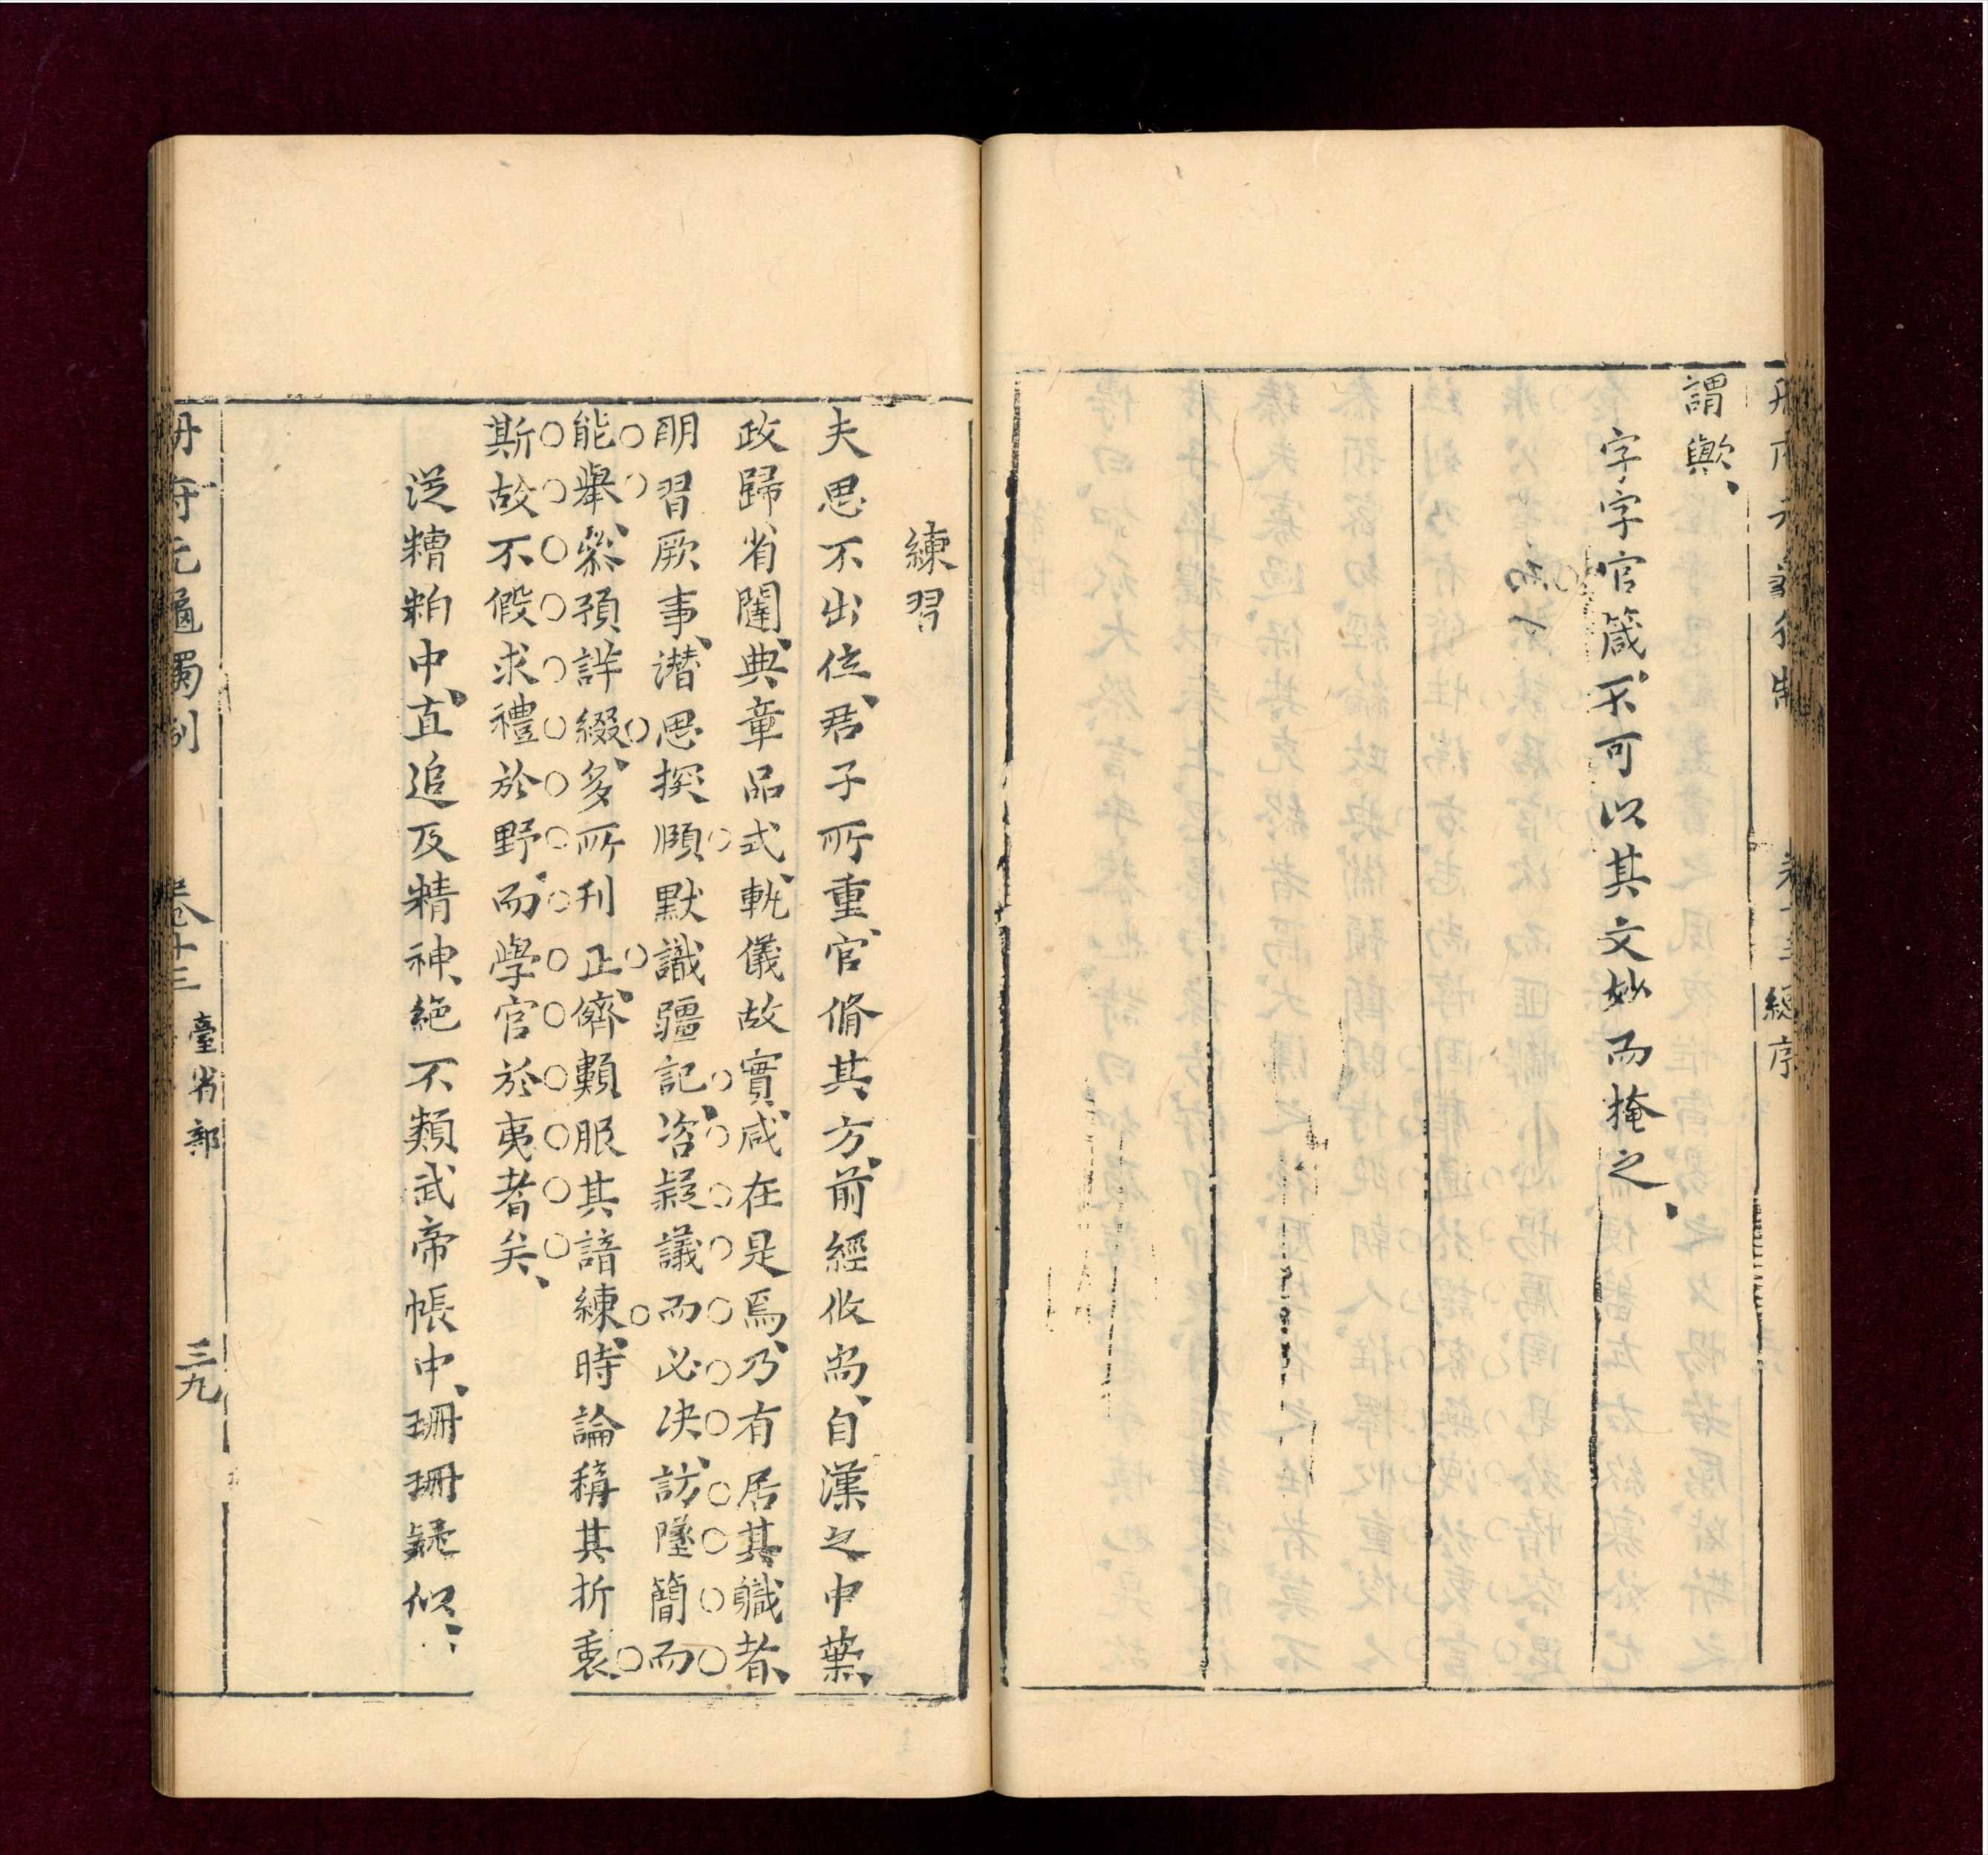 謂歟、
字字官箴、不可以其文妙而掩之、
練習
夫思不出位、君子所重、官脩其方、前經攸尚、自漢之中葉、
政歸省闥、典章品式、軌儀故實、咸在是焉、乃有居其職者、
明習厥事、潜思探賾、默識彊記、咨疑議而必决、訪墜簡而
能舉、綵預詳綴、多所刊正、儕類服其諳練、時論稱其折衷、
斯故不假求禮於野、而學官於夷者矣、
從糟粕中、直追及精神、絶不類武帝帳中、珊珊疑似、
冊府元龜獨制 卷十三 臺省部 三九